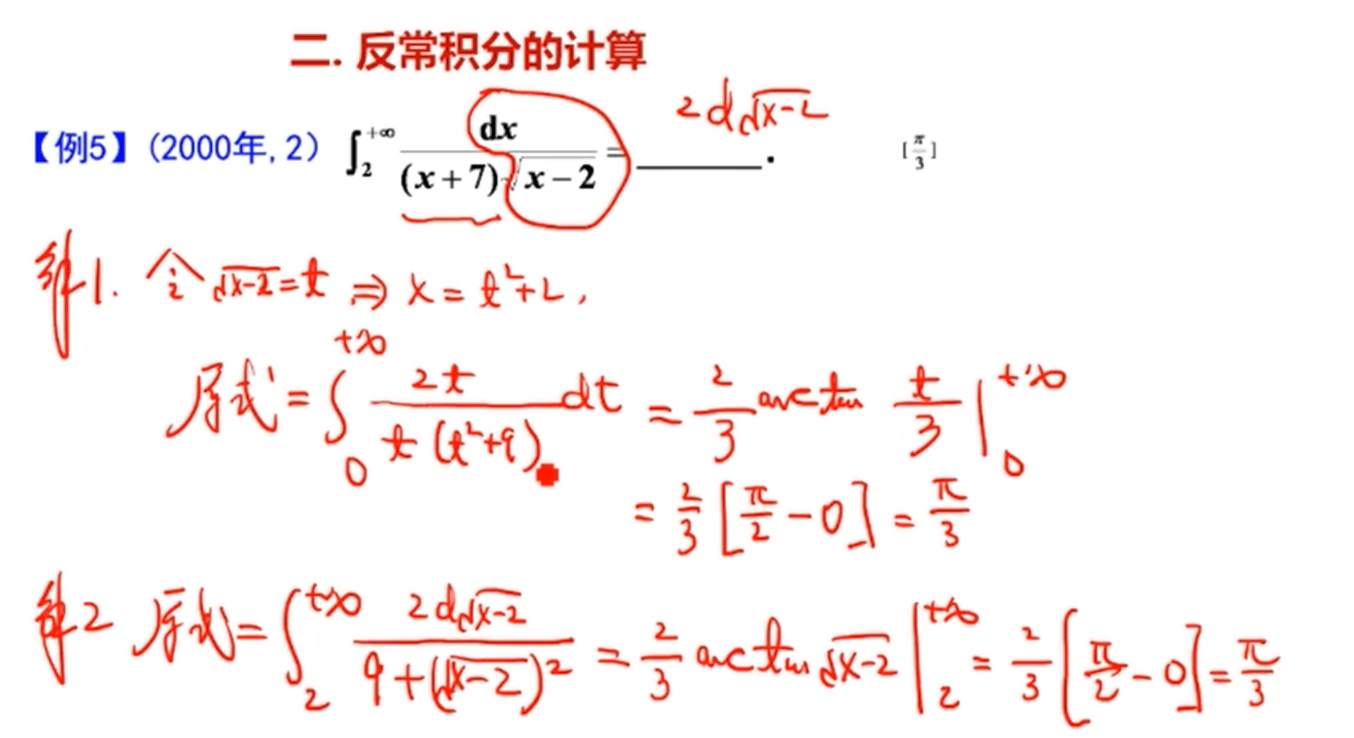 二. 反常积分的计算
2d√(x-2)
【例5】(2000年, 2) ∫₂^{+∞} dx / ((x+7)√(x-2)) = ________. [π/3]
解1. 令 √(x-2) = t ⇒ x = t²+2,
原式 = ∫₀^{+∞} 2t / (t(t²+9)) dt = 2/3 arctan t/3 |₀^{+∞}
= 2/3 [π/2 - 0] = π/3
解2 原式 = ∫₂^{+∞} 2d√(x-2) / (9+(√(x-2))²) = 2/3 arctan √(x-2) |₂^{+∞} = 2/3 [π/2 - 0] = π/3